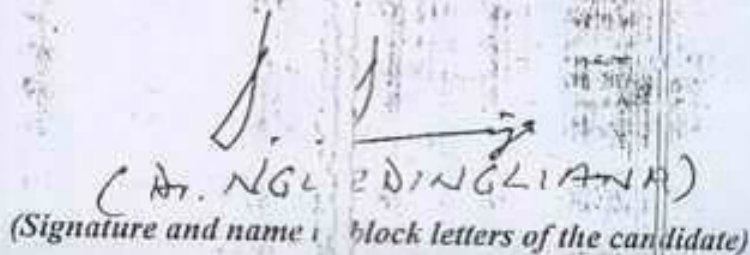 ( Dr. NGL EDINGLIANA)
(Signature and name i block letters of the candidate)